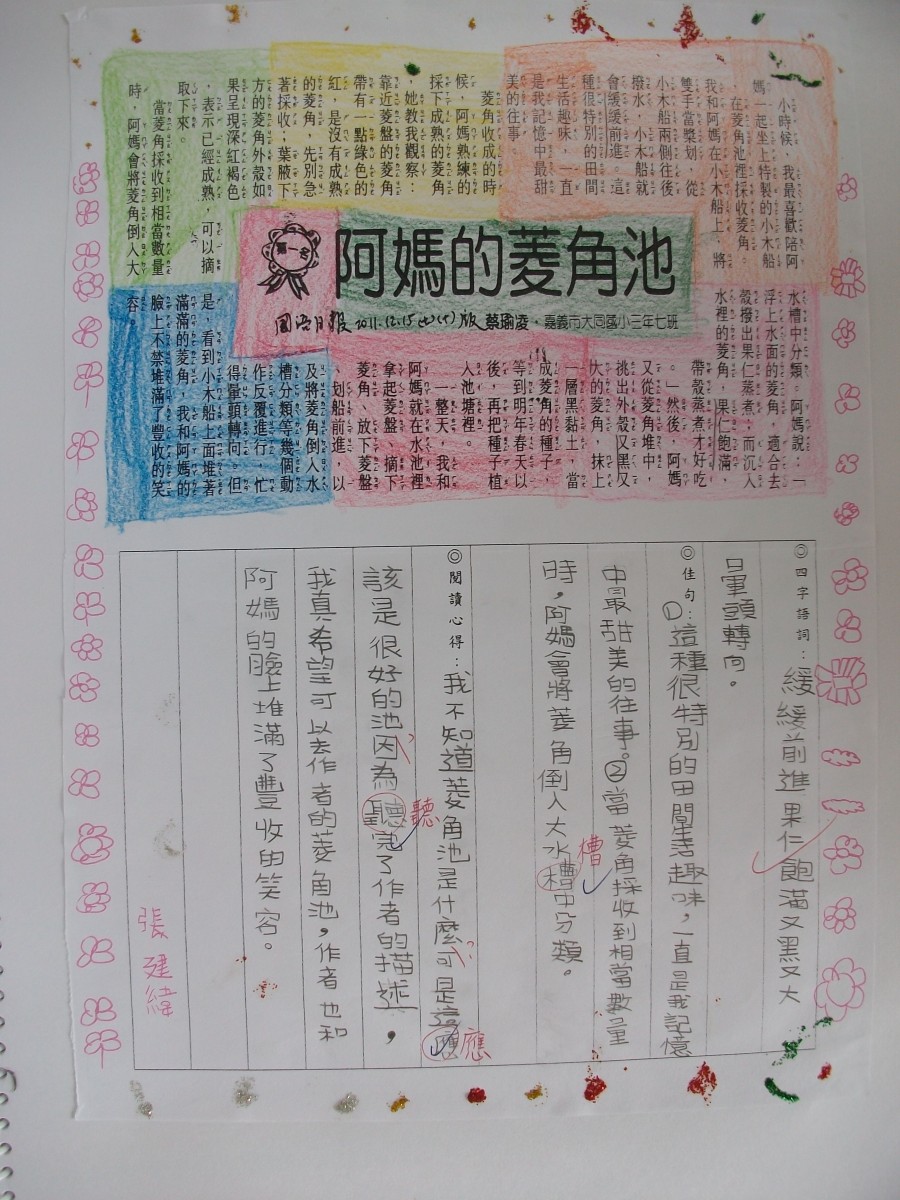 阿媽的菱角池
第一名
國語日報 2011.12.15(七)版 蔡瑜凌・嘉義市大同國小三年七班
小時候，我最喜歡陪阿
媽一起坐上特製的小木船
，在菱角池裡採收菱角。
我和阿媽在小木船上，將
雙手當槳划，從
小木船兩側往後
撥水，小木船就
會緩緩前進。這
種很特別的田間
生活趣味，一直
是我記憶中最甜
美的往事。
菱角收成的時
候，阿媽熟練的
採下成熟的菱角
，她教我觀察：
靠近菱盤的菱角
帶有一點綠色的
紅，是沒有成熟
的菱角，先別急
著採收；葉腋下
方的菱角外殼如
果呈現深紅褐色
，表示已經成熟，可以摘
取下來。
當菱角採收到相當數量
時，阿媽會將菱角倒入大
水槽中分類：阿媽說：「
浮上水面的菱角，適合去
殼撥出果仁蒸煮；而沉入
水裡的菱角，果仁飽滿，
帶殼蒸煮才好吃
。」然後，阿媽
又從菱角堆中，
挑出外殼又黑又
大的菱角，抹上
一層黑黏土，當
成菱角的種子，
等到明年春天以
後，再把種子植
入池塘裡。
一整天，我和
阿媽就在水池裡
拿起菱盤、摘下
菱角、放下菱盤
、划船前進，以
及將菱角倒入水
槽分類等幾個動
作反覆進行，忙
得暈頭轉向。但
是，看到小木船上面堆著
滿滿的菱角，我和阿媽的
臉上不禁堆滿了豐收的笑
容。
◎四字語詞：緩緩前進果仁飽滿又黑又大
暈頭轉向。
◎佳句：①這種很特別的田間生活趣味，一直是我記憶
中最甜美的往事。②當菱角採收到相當數量
時，阿媽會將菱角倒入大水槽中分類。
槽
◎閱讀心得：我不知道菱角池是什麼可是這應
應
該是很好的池因為聽完了作者的描述，
聽
我真希望可以去作者的菱角池，作者也和
阿媽的臉上堆滿了豐收的笑容。
張建緯